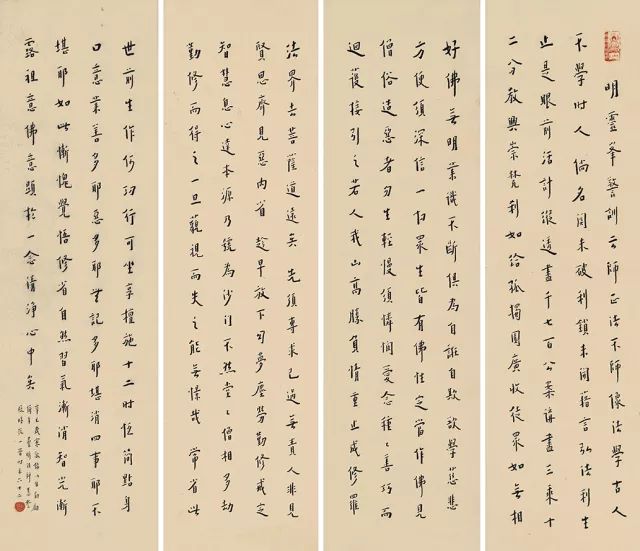 明靈峯警訓云師正法不師像法學古人
不學時人倘名關未破利鎖未開藉言弘法利生
止是眼前活計縱透盡千七百公案講盡三乘十
二分教興崇梵刹如給孤獨園廣收徒眾如無相
好佛無明業識不斷俱為自誑自欺欲學慈悲
方便須深信一切眾生皆有佛性定當作佛見
僧俗造惡者勿生輕慢須憐憫愛念種〻善巧而
迴護接引之若人我山高勝負情重止成修羅
法界去菩薩道遠矣先須專求己過毋責人非見
賢思齊見惡內省趁早放下勿夢塵勞勤修戒定
智慧息心達本源乃號為沙門不然堂〻僧相多劫
勤修而得之一旦藐視而失之能無愧哉常省此
世前生作何功行可坐享檀施十二時簡點身
口意業善多耶惡多耶無記多耶堪消四事耶不
堪耶如此慚愧覺悟修省自然習氣漸消智光漸
露祖意佛意顯於一念清淨心中矣